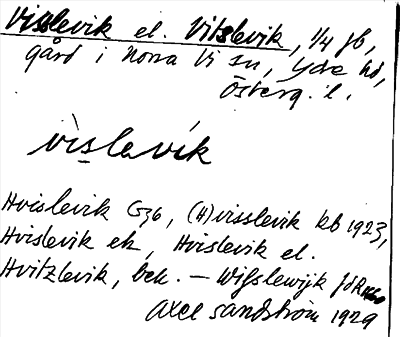 Visslevik el. Vitslevik, 1/4 jb,
gård i Norra Vi sn, Ydre hd,
Österg. l.
vìslevík
Hvislevik G36, (H)visslevik kb 1923,
Hvislevik ek, Hvislevik el.
Hvitzlevik, bek. – Wifslewijk
Axel Sandström 1929